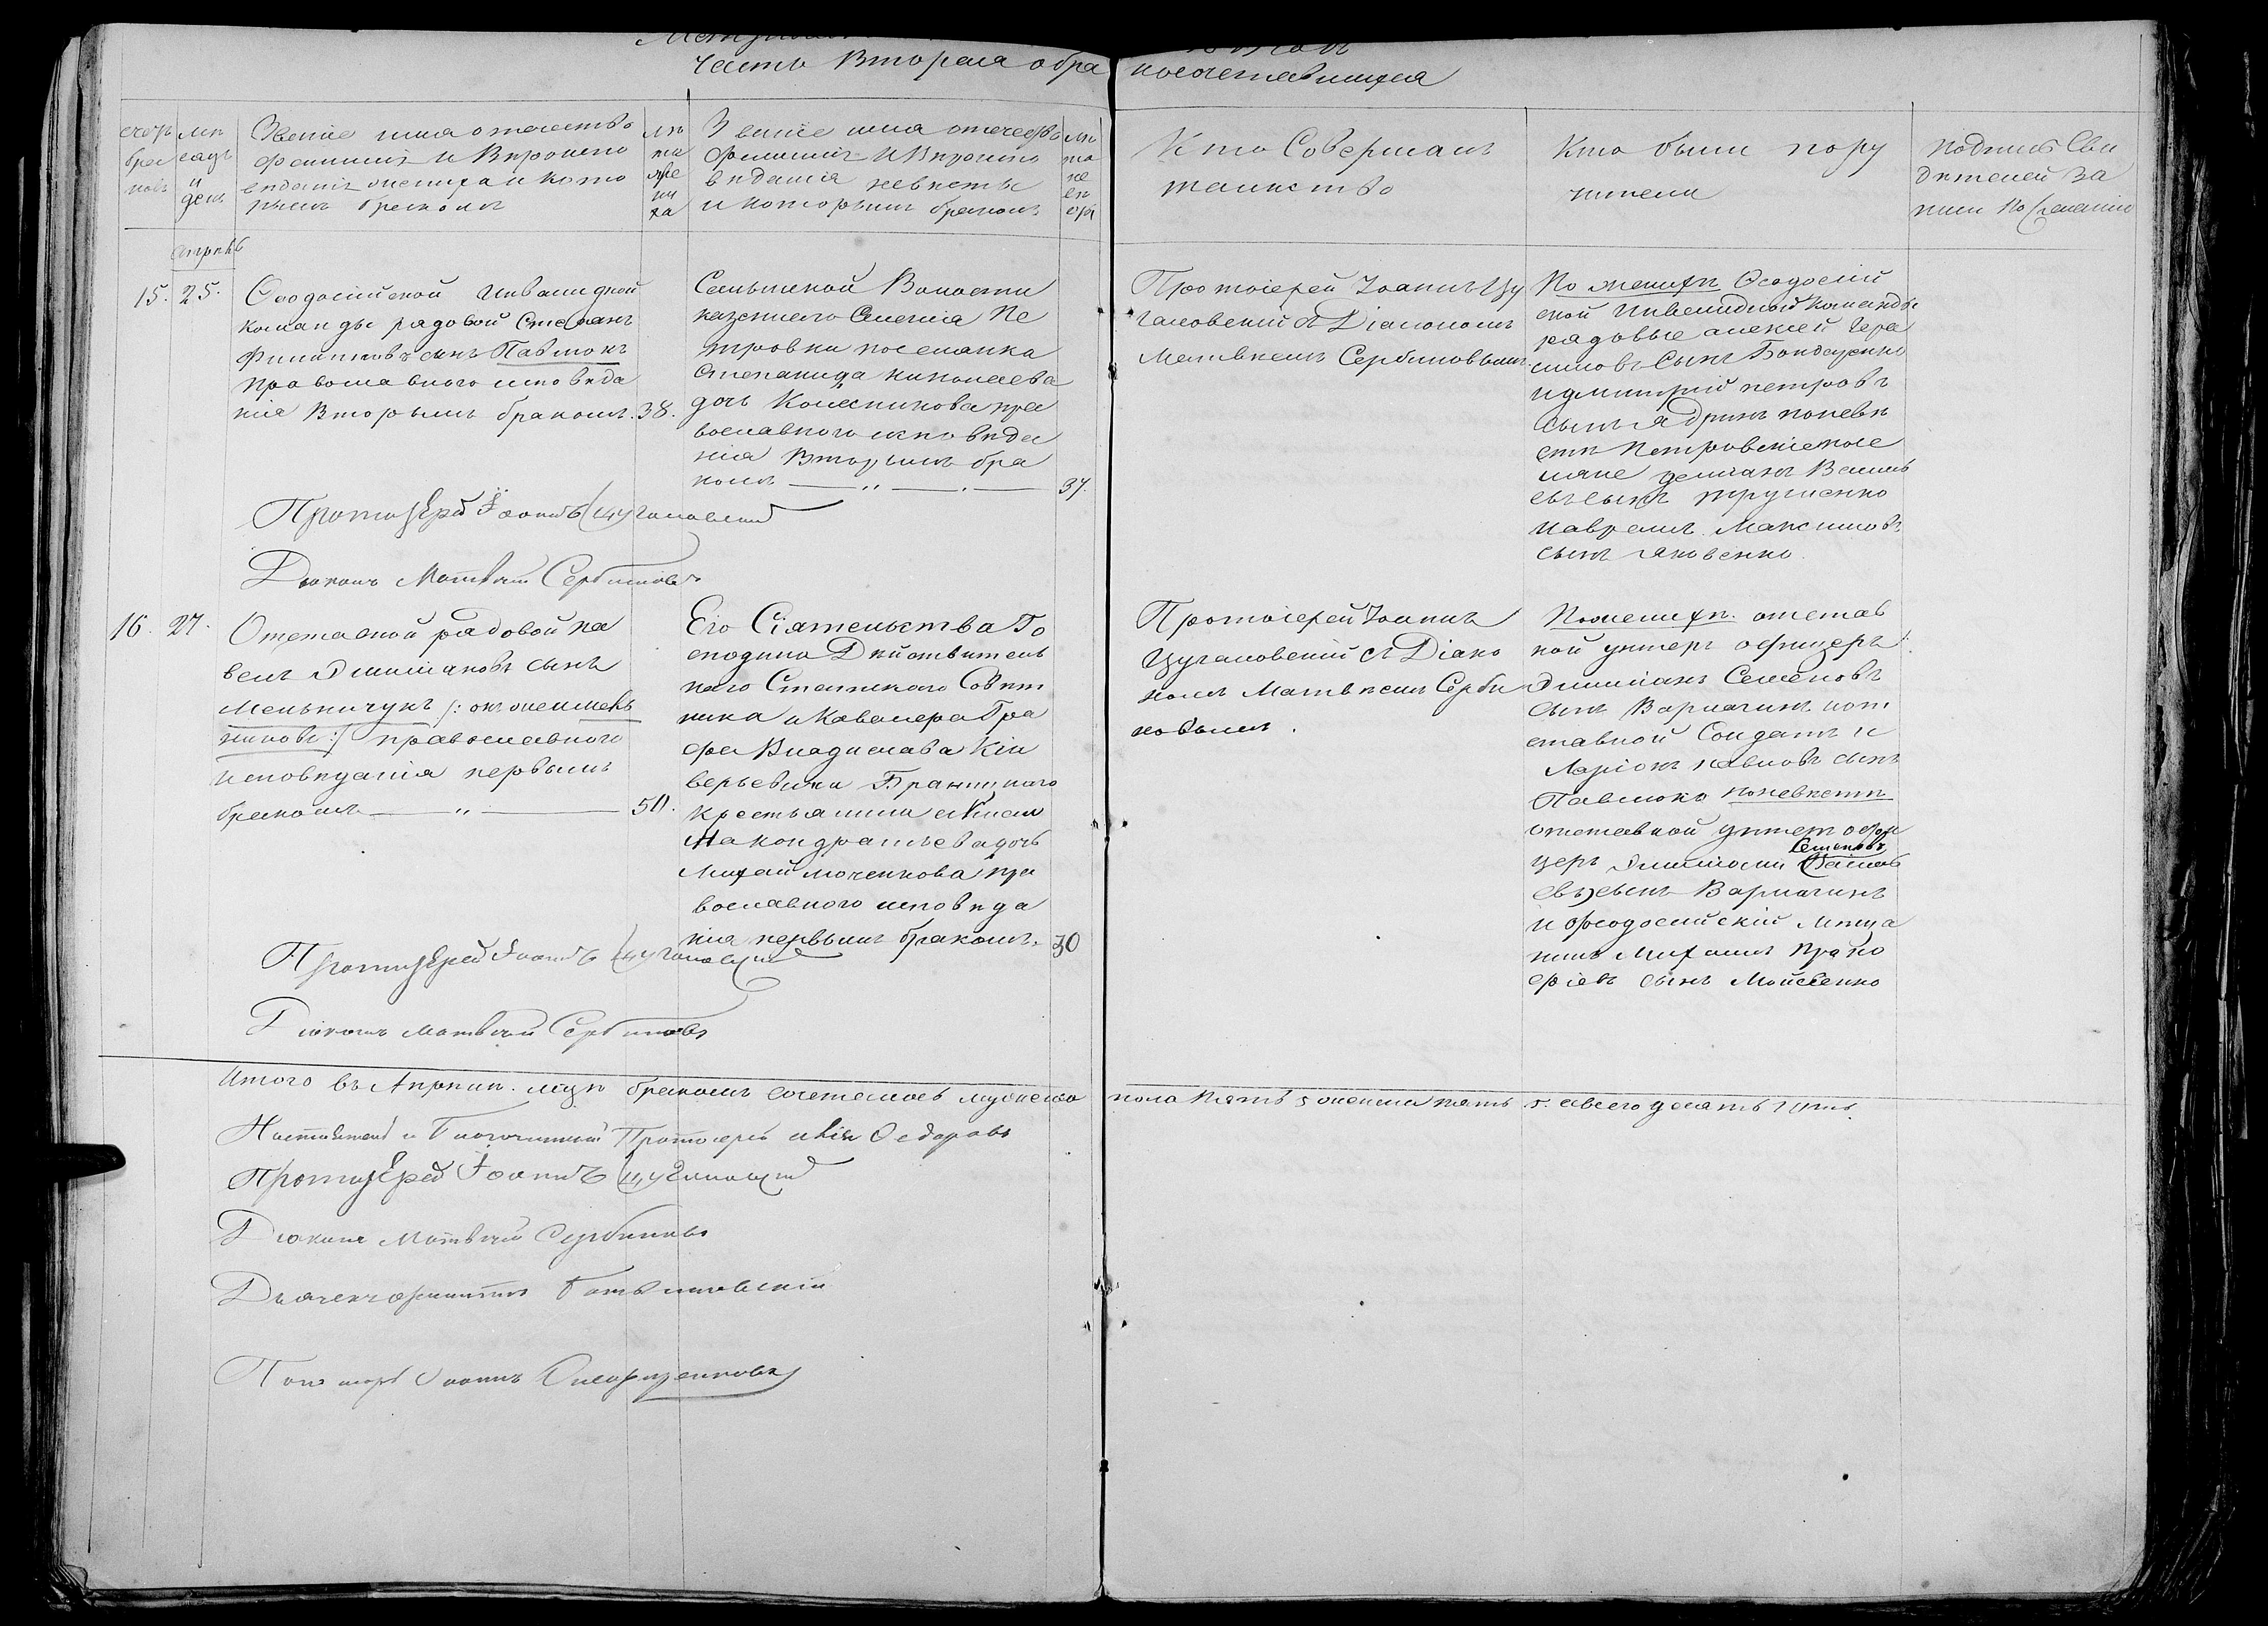 часть Вторая о бра
косочетавшихся
счетъ браковъ
мѣсяцъ и день
Званіе имя отечество
фамилія и Вѣроиспо
вѣданіе жениха и кото
рымъ бракомъ
лѣта жениха
Званіе имя отечество
фамилія и Вѣроиспо
вѣданія невѣсты
и которымъ бракомъ
лѣта невѣсты
Кто Совершалъ
таинство
Кто были пору
чители
подписъ Сви
дѣтелей За
писи по Желанію
апрѣль
15. 25.
Ѳеодосійской инвалидной
команды рядовой Стефанъ
Филиповъ сынъ Павлюкъ
православного исповѣда
нія Вторымъ бракомъ. 38.
Волости
казенного Селенія Пе
тровки поселянка
Степанида николаева
дочь Колесникова пра
вославного исповѣда
нія Вторымъ бра
комъ 37.
Протоіерей Іоаннъ Цу
гановскій съ Діакономъ
Матвѣемъ Сербиновымъ.
По женихѣ Ѳеодосій
ской инвалидной команды
рядовые алексей Гера
симовъ Сынъ Бондаренко
и дмитрій петровъ
Сынъ ядринъ по невѣ
стѣ Петровскіе посе
ляне демянъ Василь
евъ сынъ
Максимовъ
сынъ яковенко.
Протоіерей Іоаннъ Цугановскій
Діаконъ Матвѣй Сербиновъ
16. 27.
Отставной рядовой Па
велъ Эмилiановъ сынъ
Мельничукъ /: онъ же и мель
никовъ :/ православного
исповѣданія первымъ
бракомъ 50.
Его Сіятельства Го
сподина Дѣйствитель
ного Статского Совѣт
ника и Кавалера Гра
фа Владислава Кса
верьевича Браницкаго
крестьянина
на кондратьева дочь
Михайлюченкова пра
вославного исповѣда
нія первымъ бракомъ. 30
Протоіерей Іоаннъ
Цугановскій съ Діако
номъ Матвѣемъ Серби
новымъ.
По женихѣ. отстав
ной унтеръ офицеръ
Эмиліанъ Семеновъ
сынъ Варлагинъ и от
ставной Солдатъ и
Ларіонъ павловъ сынъ
Павлюкъ по невѣстѣ
отставной унтеръ офи
церъ Эмиліанъ Семеновъ (Васильевъ)
сынъ Варлагинъ
и Ѳеодосійскій мѣща
нинъ Михаилъ Проко
фіевъ сынъ Мойсеенко
Протоіерей Іоаннъ Цугановскій
Діаконъ Матвѣй Сербиновъ
Итого въ Апрѣли. мцѣ бракомъ сочеталось мужеска
пола пять 5 женска пять 5. а всего десять душъ.
Настоятель и Благочинный Протоіерей Ѳедоровъ
Протоіерей Іоаннъ Цугановскій
Діаконъ Матвѣй Сербиновъ
Пономарь Іоаннъ